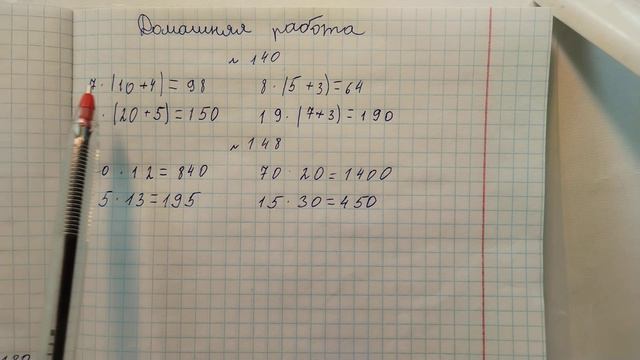 Домашняя работа
№ 140
7 · (10 + 4) = 98 8 · (5 + 3) = 64
· (20 + 5) = 150 19 · (7 + 3) = 190
№ 148
0 · 12 = 840 70 · 20 = 1400
5 · 13 = 195 15 · 30 = 450